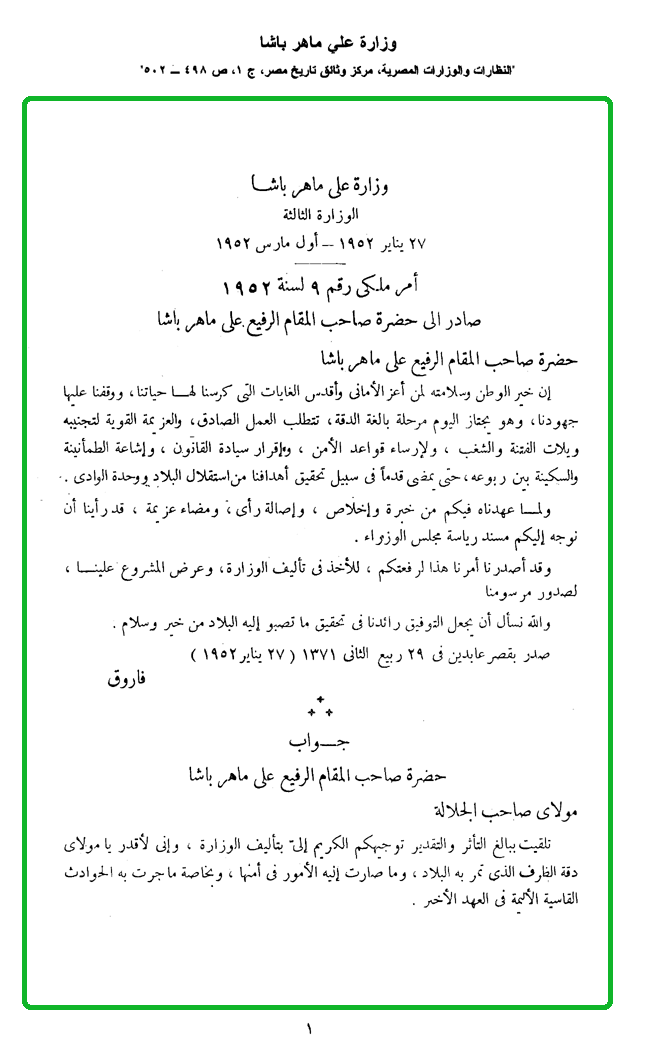 وزارة علي ماهر باشا
"النظارات والوزارات المصرية، مركز وثائق تاريخ مصر، ج ١، ص ٤٩٨ – ٥٠٢"
وزارة على ماهر باشا
الوزارة الثالثة
٢٧ يناير ١٩٥٢ – أول مارس ١٩٥٢
أمر ملكى رقم ٩ لسنة ١٩٥٢
صادر الى حضرة صاحب المقام الرفيع على ماهر باشا
حضرة صاحب المقام الرفيع على ماهر باشا
إن خير الوطن وسلامته لمن أعز الأمانى وأقدس الغايات التى كرسنا لها حياتنا، ووقفنا عليها
جهودنا، وهو يجتاز اليوم مرحلة بالغة الدقة، تتطلب العمل الصادق، والعزيمة القوية لتجنيبه
ويلات الفتنة والشغب ، ولإرساء قواعد الأمن ، وإقرار سيادة القانون ، وإشاعة الطمأنينة
والسكينة بين ربوعه، حتى يمضى قدماً فى سبيل تحقيق أهدافنا من استقلال البلاد ووحدة الوادى .
ولما عهدناه فيكم من خبرة وإخلاص ، وإصالة رأى ، ومضاء عزيمة ، قد رأينا أن
نوجه إليكم مسند رياسة مجلس الوزراء .
وقد أصدرنا أمرنا هذا لرفعتكم ، للأخذ فى تأليف الوزارة، وعرض المشروع علينا ،
لصدور مرسومنا
والله نسأل أن يجعل التوفيق رائدنا فى تحقيق ما تصبو إليه البلاد من خير وسلام .
صدر بقصر عابدين فى ٢٩ ربيع الثانى ١٣٧١ ( ٢٧ يناير ١٩٥٢ )
فاروق
جواب
حضرة صاحب المقام الرفيع على ماهر باشا
مولاى صاحب الجلالة
تلقيت ببالغ التأثر والتقدير توجيهكم الكريم إلىّ بتأليف الوزارة ، وإنى لأقدر يا مولاى
دقة الظرف الذى تمر به البلاد ، وما صارت إليه الأمور فى أمنها ، وبخاصة ما جرت به الحوادث
القاسية الأليمة فى العهد الأخير .
١